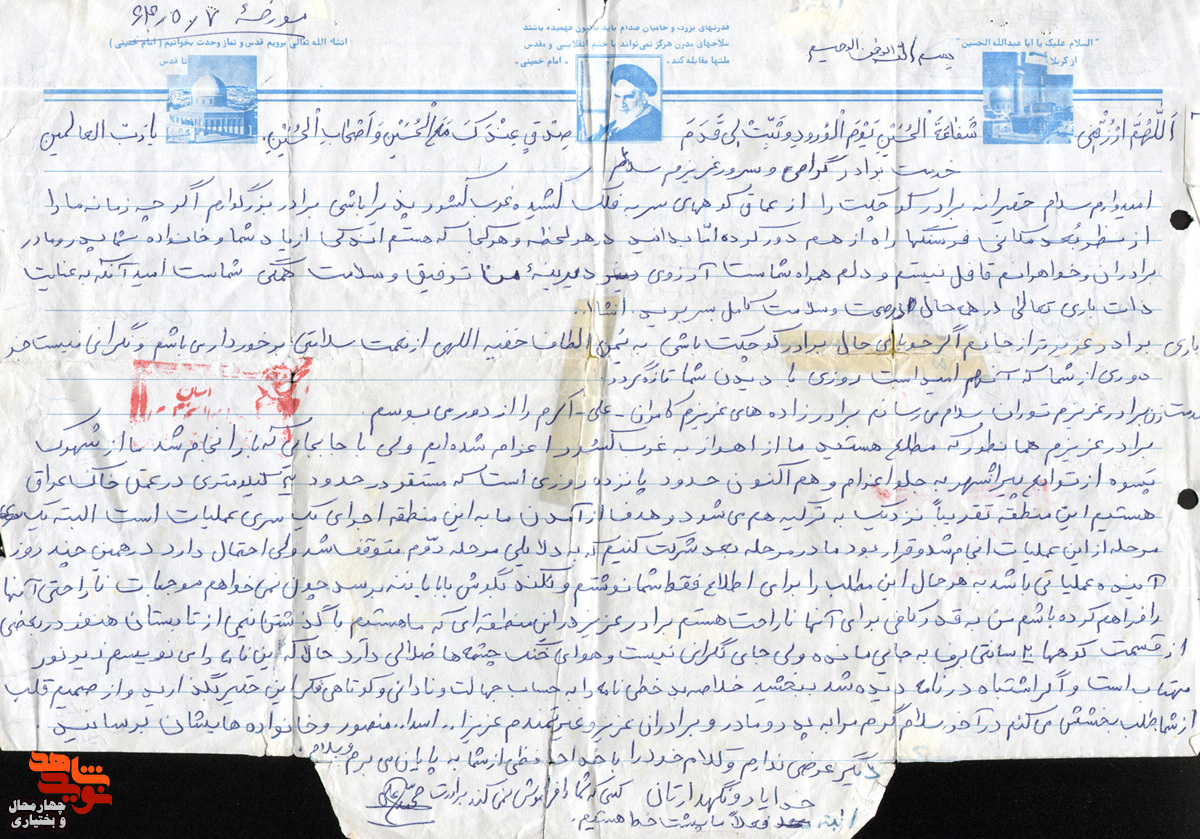 مورخهٔ ۶۴/۵/۷
بسم الله الرحمن الرحیم
انشاء الله تعالی برویم قدس و نماز وحدت بخوانیم ( امام خمینی )
تا قدس
قدرتهای بزرگ و حامیان صدام باید تاکنون فهمیده باشند
سلاحهای مدرن هرگز نمی‌تواند با خشم انقلابی و مقدس
ملتها مقابله کند. « امام خمینی »
"السلام علیک یا ابا عبدالله الحسین"
از کربلا
اَللّهُمَّ ارْزُقْنی شَفاعَةَ الْحُسَیْنِ یَوْمَ الْوُرودِ وَ ثَبِّتْ لی قَدَمَ صِدْقٍ عِنْدَکَ مَعَ الْحُسَیْنِ وَ اَصْحابِ الْحُسَیْنِ. یا رَبَّ العالمین
خدمت برادر گرامی و سرور عزیزم سلام
امیدوارم سلام حقیرانه برادر کوچکت را از عماق کوههای سر به فلک کشیده غرب کشور پذیرا باشی برادر بزرگوارم اگر چه زمانه ما را
از نظر بُعد مکانی فرسنگها راه از هم دور کرده امّا بدانید در هر لحظه و هر کجا که هستم اندکی از یاد شما و خانواده شما پدر و مادر
برادران و خواهرانم غافل نیستم و دلم همراه شماست آرزوی دیرینهٔ من توفیق و سلامت همگی شماست امید آنکه به عنایت
ذات باری تعالی در همه حال در صحت و سلامت کامل بسر برید. انشاا...
باری برادر عزیزتر از جانم اگر جویای حال برادر کوچکت باشی به یُمن الطاف خفیه اللهی از نعمت سلامتی برخورداری باشم و نگرانی نیست جز
دوری از شما که آنهم امید است روزی با دیدن شما تازه گردد.
خدمت زن برادر عزیزم توران سلام می رسانم برادرزاده های عزیزم کامران - علی - اکرم را از دور می بوسم.
برادر عزیزم همانطور که مطلع هستید ما از اهواز به غرب کشور اعزام شده ایم ولی با جابجائی که بار انجام شد ما از شهرک
پسوه از توابع پیرانشهر به جلو اعزام و هم اکنون حدود پانزده روزی است که مستقر در حدود کیلومتری در عمق خاک عراق
هستیم این منطقه تقریباً نزدیک به ترکیه هم می شود و هدف از آمدن ما به این منطقه اجرای یک سری عملیات است البته یک
مرحله از این عملیات انجام شد و قرار بود ما در مرحله بعد شرکت کنیم که به دلایلی مرحله دوّم متوقف شد ولی احتمال دارد در همین چند روز
آینده عملیاتی باشد به هر حال این مطلب را برای اطلاع فقط شما نوشتم و نکند بگوش بابا یا ننه برسد چون نمی خواهم موجبات ناراحتی آنها
را فراهم کرده باشم من به قدر کافی برای آنها ناراحت هستم برادر عزیز در این منطقه ای که ما هستیم با گذشتن نیمی از تابستان هنوز در بعضی
از قسمت کوهها سانتی برف به جای مانده ولی جای نگرانی نیست و هوای خنک چشمه ها ضلالی دارد حالا که این نامه را می نویسم زیر نور
مهتاب است و اگر اشتباه در نامه دیده شد ببخشید خلاصه بد خطی نامه را به حساب جهالت و نادانی و کوتاهی فکر این حقیر بگذارید و از صمیم قلب
از شما طلب بخشش می کنم در آخر سلام گرم مرا به پدر و مادر و برادران عزیز و غیرتمندم عزیزا.. اسدا.. منصور و خانواده هایشان برسانید
دیگر عرضی ندارم و کلام خود را با خداحافظی از شما به پایان می برم والسلام.
خدا یار و نگهدارتان کسی که شما را فراموش نمی کند برادرت
البته فعلاً ما پشت خط هستیم.
نوید شاهد
چهارمحال
و بختیاری